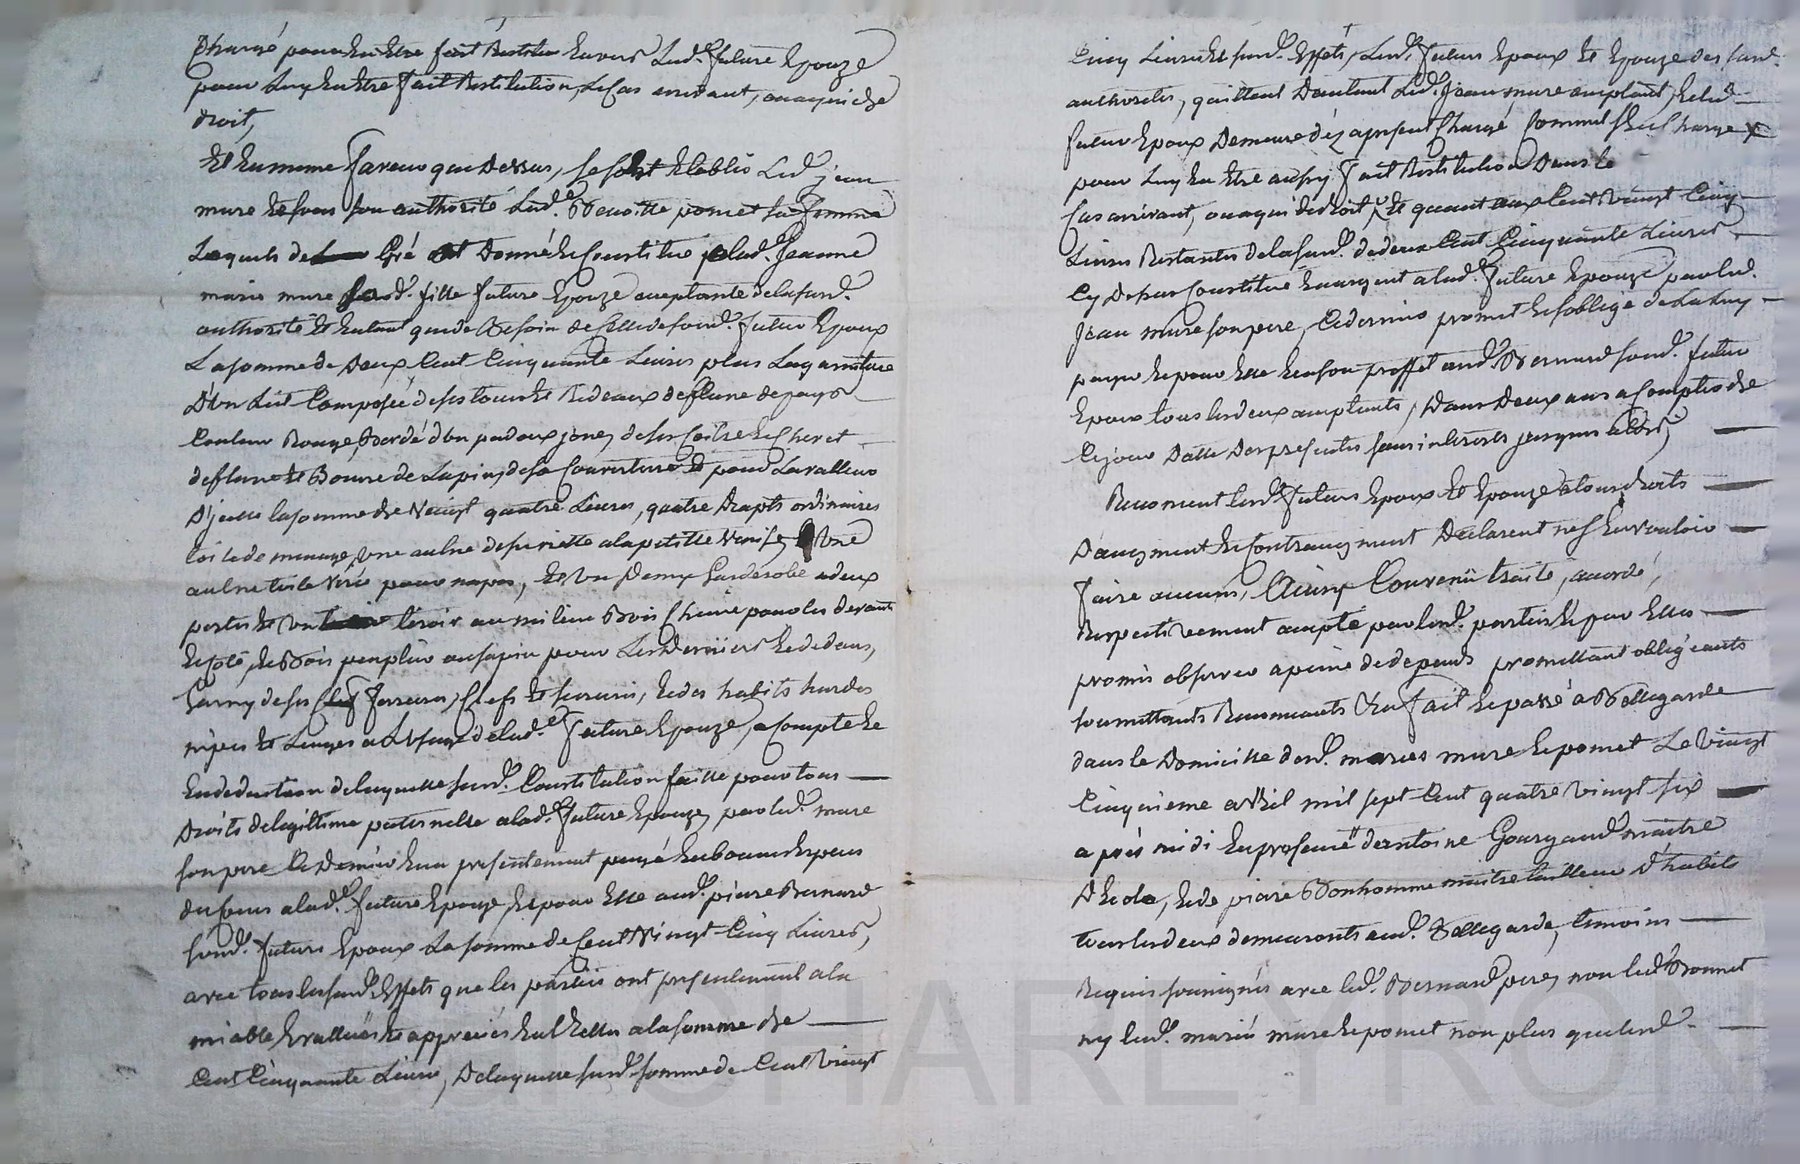 Chargé pour en Etre fait Restitu Envers Lad.e future Epouze
pour Luy En Etre fait Restitution, Le Cas arrivant, ou a qui de
droit,
Et En meme faveur que Dessus, se sont Etablis Led.t jean
mure Et sous son authorité Lad.e Benoitte pomet sa femme
Lesquels de Gré ont Donné Et Constitué a lad.e Jeanne
marie mure sud.e fille future Epouze acceptante de la sud.e
authorité Et En tant que de Besoin de Celle de son d.t futur Epoux
La somme de Deux Cent Cinquante Livres plus La garniture
D'un Lit Composée de ses tours Et Rideaux de de pays
Couleur Rouge, Bordé d'un padoux jone, de Coitre Et Chevet
de plume Et Bourre de Lapin, de sa Couverture Et pour La valleur
D'jcelle la somme de Vingt quatre Livres, quatre Drapts ordinaires
toile de menage, une aulne de serviette a la petitte Venise, Une
aulne toile pour napes, Et Un Demy Garderobe a deux
portes Et Un tiroir au milieu Bois Chene pour les devants
Et Coté, Et Bois peuplier ou sapin pour Les Derniers Et dedans,
Garny de ses ferrures, Clefs Et serrures, Et des habits hardes
nipes Et Linges a L'usage de lad.e future Epouze, a Compte Et
En deduction de laquelle sud.e Constitution faitte pour tous
Droits de legittime paternelle a lad.e future Epouze, par led.t mure
son pere Ce Dernier En a presentement payé En bonnes Especes
du Cours a lad.e future Epouze, Et pour Elle aud.t pierre Bernard
sond.t futur Epoux La somme de Cent Vingt Cinq Livres,
avec tous les sud.ts Effets que les parties ont presentement a la
miable Evallués Et appreciés Entr'Elles a la somme de
Cent Cinquante Livres, De laquelle sud.e somme de Cent Vingt
Cinq Livres Et sud.ts Effets, Lesd.ts futurs Epoux Et Epouze des sud.es
authorités, quittent D'autant Led.t Jean mure acceptant, Et led.t
futur Epoux Demeure déz a present Chargé Comme il s'En Charge
pour Luy En Etre aussy fait Restitution Dans le
Cas arrivant, ou a qui de droit, Et quant aux Cent Vingt Cinq
Livres Restantes de la sud.e de deux Cent Cinquante Livres
Cy Dessus Constituée En argent a lad.e future Epouze par led.t
Jean mure son pere, Ce dernier promet Et s'oblige de La luy
payer Et pour Elle En son proffit aud.t Bernard sond.t futur
Epoux tous les deux acceptants, Dans Deux ans a Compter de
Ce jour Datte Des presentes sans interests jusques alors,
Renoncent lesd.ts futurs Epoux Et Epouze a tous droits
D'augment Et Contreaugment Déclarent n'En Vouloir
faire aucuns, Ainsy Convenu traité, accordé,
Respectivement accepté par lesd.es parties Et par Elles
promis observer a peine de depends promettants obligeants
soumettants Renonceants &a fait Et passé a Bellegarde
dans le Domicille desd.ts mariés mure Et pomet Le Vingt
Cinquieme avril mil sept Cent quatre Vingt six
aprés midi En presence d'antoine Gourgaud maitre
D'Ecole, Et de pierre Bonhomme maitre tailleur D'habits
tous les deux demeurants aud.t Bellegarde, temoins
Requis soussignés avec led.t Bernard pere, non led.t Bonnet
ny lesd.ts mariés mure Et pomet non plus que lesd.ts